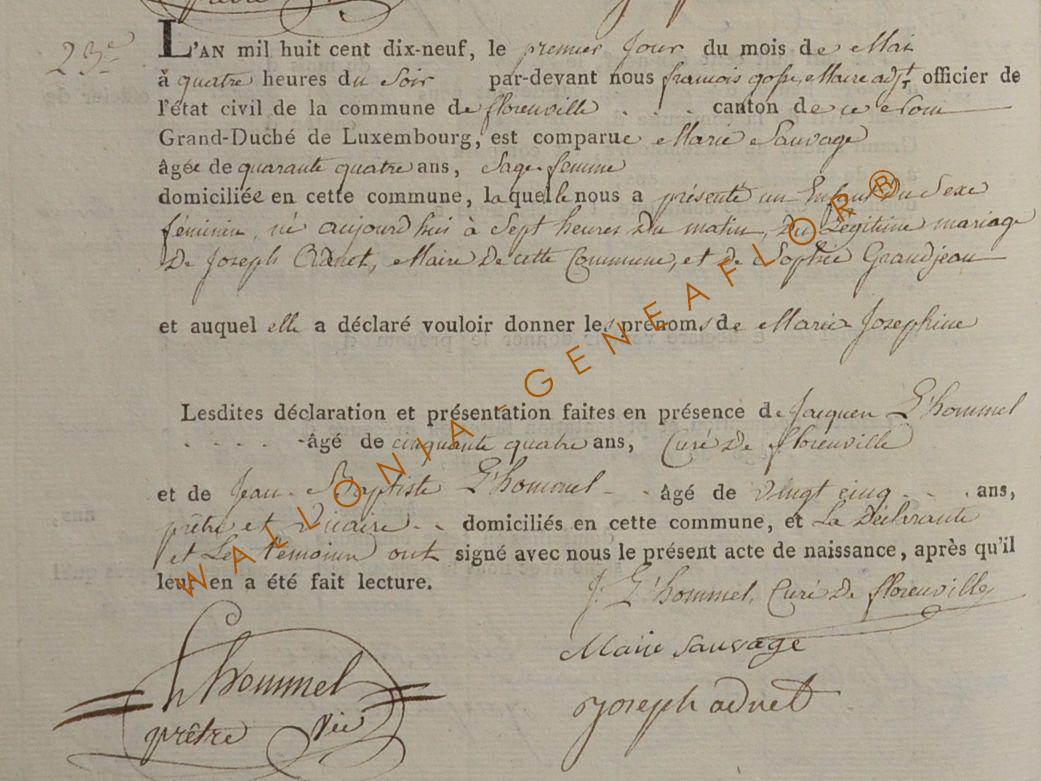 23.e
L'AN mil huit cent dix-neuf, le premier Jour du mois de Mai
à quatre heures du Soir par-devant nous francois Maire adjt officier de
l'état civil de la commune de florenville canton de
Grand-Duché de Luxembourg, est comparue Marie Sauvage
âgée de quarante quatre ans, Sage-femme
domiciliée en cette commune, laquelle nous a présenté un Enfant du Sexe
féminin, né aujourd'hui à Sept heures du matin, du Légitime mariage
de Joseph Adnet, Maire de cette Commune, et de Sophie Grandjean
et auquel elle a déclaré vouloir donner les prénoms de Marie Josephine
Lesdites déclaration et présentation faites en présence de Jacques L'hommel
âgé de cinquante quatre ans, Curé de florenville
et de Jean-Baptiste L'hommel âgé de vingt cinq ans,
prêtre et Vicaire domiciliés en cette commune, et La Déclarante
et Les témoins ont signé avec nous le présent acte de naissance, après qu'il
leur en a été fait lecture.
J. L'hommel, Curé de florenville
Marie Sauvage
Lhommel
prêtre Vic
joseph adnet
WALLONIA-GENEAFLOR®